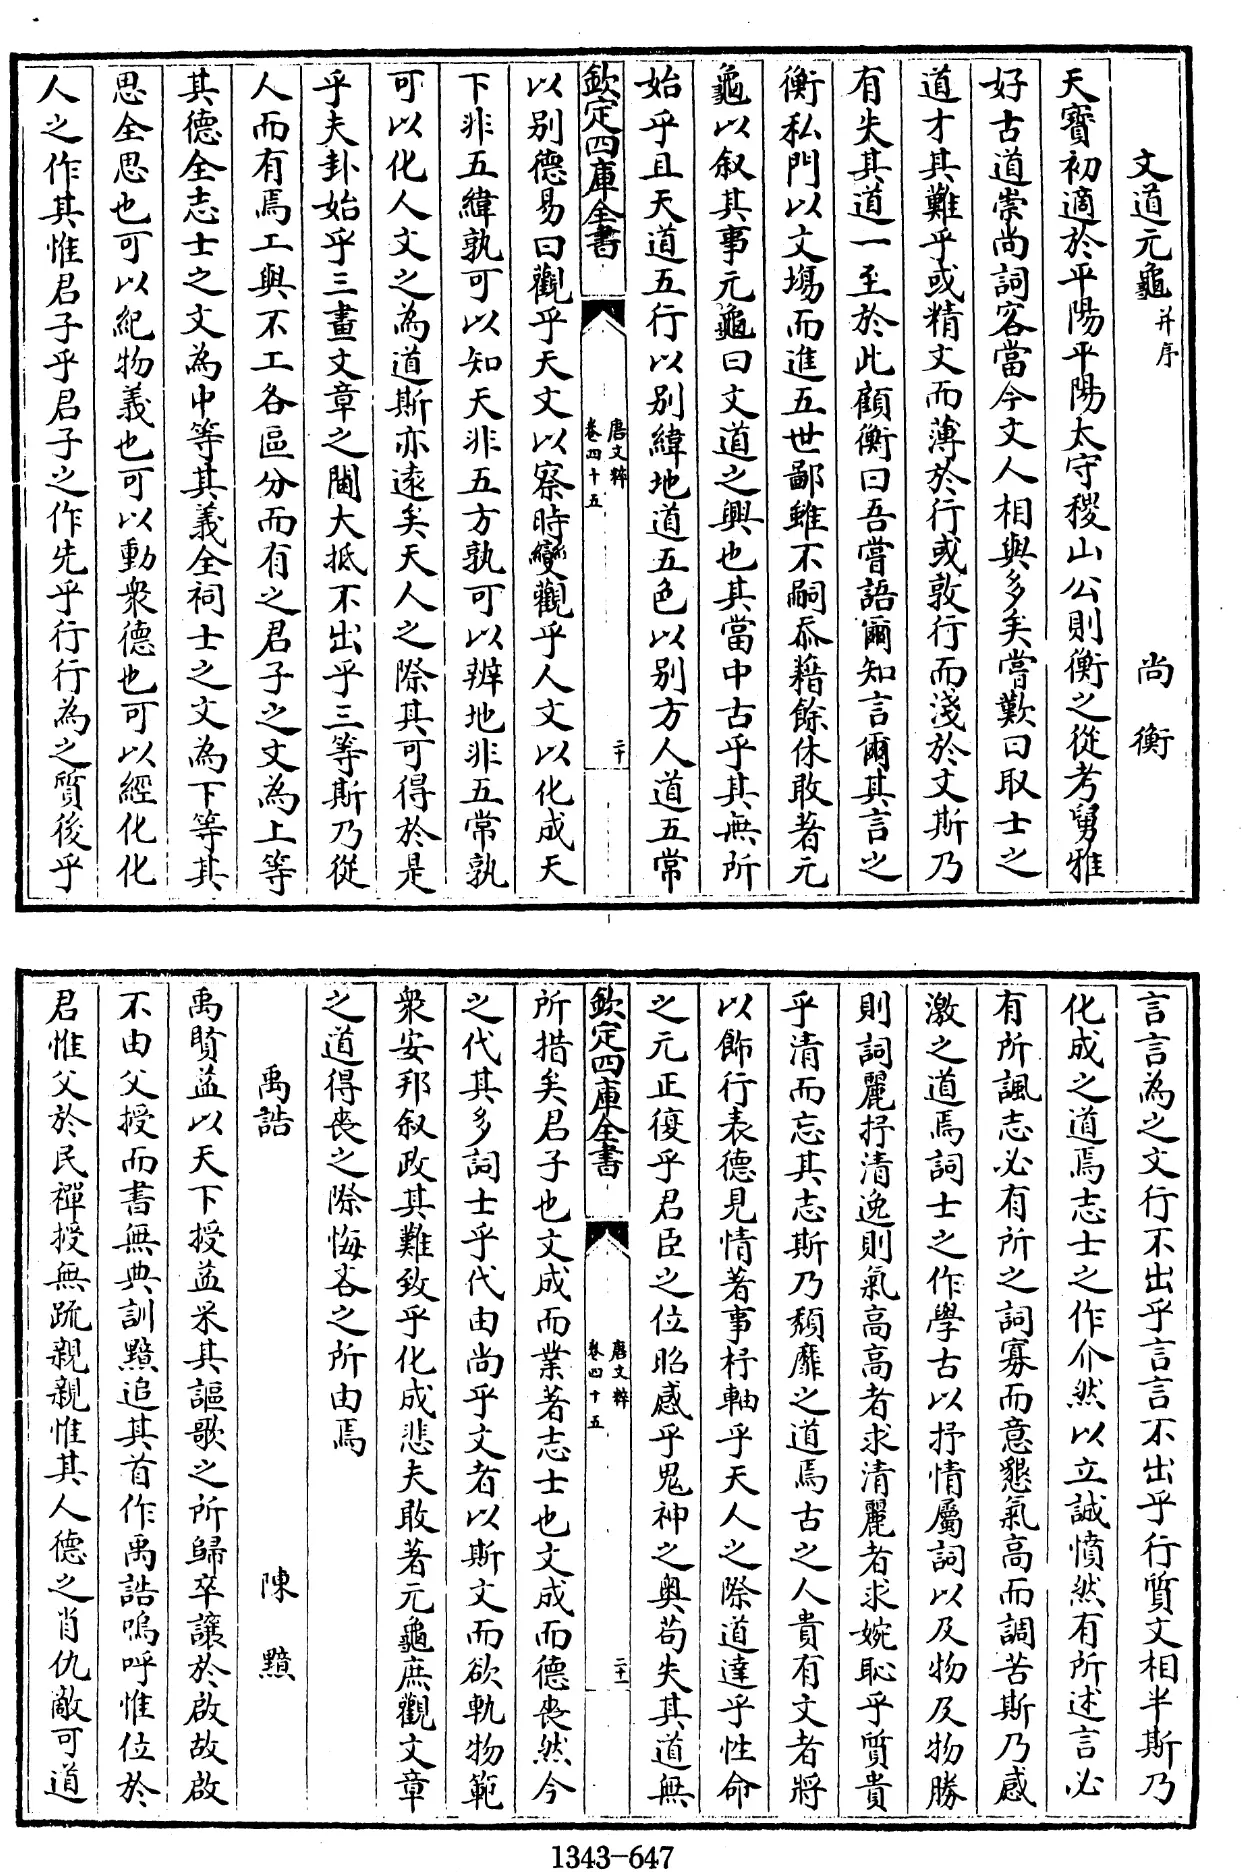 文道元龜并序 尚衡
天寶初適於平陽平陽太守稷山公則衡之從考舅雅
好古道崇尚詞客當今文人相與多矣嘗歎曰取士之
道才其難乎或精文而薄於行或敦行而淺於文斯乃
有失其道一至於此顧衡曰吾嘗語爾知言爾其言之
衡私門以文場而進五世鄙雖不嗣忝藉餘休敢著元
龜以叙其事元龜曰文道之興也其當中古乎其無所
始乎且天道五行以别緯地道五色以别方人道五常
欽定四庫全書
唐文粹
卷四十五
二十
以别德易曰觀乎天文以察時變觀乎人文以化成天
下非五緯孰可以知天非五方孰可以辨地非五常孰
可以化人文之為道斯亦遠矣天人之際其可得於是
乎夫卦始乎三畫文章之閫大抵不出乎三等斯乃從
人而有焉工與不工各區分而有之君子之文為上等
其德全志士之文為中等其義全詞士之文為下等其
思全思也可以紀物義也可以動衆德也可以經化化
人之作其惟君子乎君子之作先乎行行為之質後乎
言言為之文行不出乎言言不出乎行質文相半斯乃
化成之道焉志士之作介然以立誠憤然有所述言必
有所諷志必有所之詞寡而意懇氣高而調苦斯乃感
激之道焉詞士之作學古以抒情屬詞以及物及物勝
則詞麗抒清逸則氣高高者求清麗者求婉恥乎質貴
乎清而忘其志斯乃頽靡之道焉古之人貴有文者將
以飾行表德見情著事杼軸乎天人之際道達乎性命
之元正復乎君臣之位昭感乎鬼神之奥苟失其道無
欽定四庫全書
唐文粹
卷四十五
二十一
所措矣君子也文成而業著志士也文成而德喪然今
之代其多詞士乎代由尚乎文者以斯文而欲軌物範
衆安邦叙政其難致乎化成悲夫敢著元龜庶觀文章
之道得喪之際悔吝之所由焉
禹誥 陳黯
禹賢益以天下授益米其謳歌之所歸卒讓於啟故啟
不由父授而書無典訓黯追其首作禹誥嗚呼惟位於
君惟父於民禪授無疏親親惟其人德之肖仇敵可道
1343-647